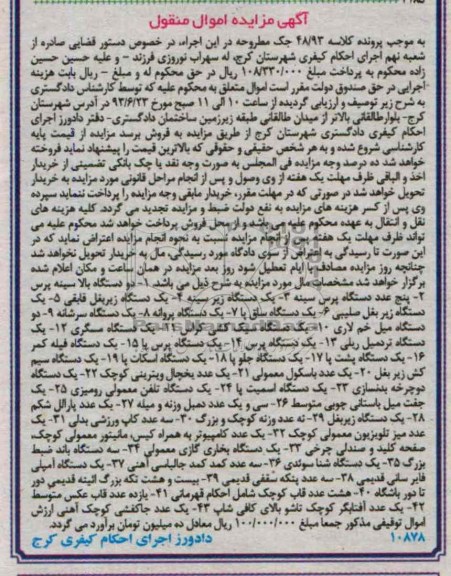 آگهی مزایده اموال منقول
به موجب پرونده کلاسه ۴۸/۹۳ جک مطروحه در این اجراء، در خصوص دستور قضایی صادره از
شعبه نهم اجرای احکام کیفری شهرستان کرج، له سهراب نوروزی فرزند - و علیه حسین حسین
زاده محکوم به پرداخت مبلغ ۱۰۸/۳۳۰/۰۰۰ ریال در حق محکوم له و مبلغ - ریال بابت هزینه
اجرایی در حق صندوق دولت مقرر است اموال متعلق به محکوم علیه که توسط کارشناس دادگستری
به شرح زیر توصیف و ارزیابی گردیده از ساعت ۱۰ الی ۱۱ صبح مورخ ۹۳/۶/۲۳ در آدرس شهرستان
کرج- بلوارطالقانی بالاتر از میدان طالقانی طبقه زیرزمین ساختمان دادگستری- دفتر دادورز اجرای
احکام کیفری دادگستری شهرستان کرج از طریق مزایده به فروش برسد مزایده از قیمت پایه
کارشناسی شروع شده و به هر شخص حقیقی و حقوقی که بالاترین قیمت را پیشنهاد نماید فروخته
خواهد شد ده درصد وجه مزایده فی المجلس به صورت وجه نقد یا چک بانکی تضمینی از خریدار
اخذ و الباقی ظرف مهلت یک هفته از وی وصول و پس از انجام مراحل قانونی مورد مزایده به خریدار
تحویل خواهد شد در صورتی که در مهلت مقرر، خریدار مابقی وجه مزایده را پرداخت ننماید سپرده
وی پس از کسر هزینه های مزایده به نفع دولت ضبط و مزایده تجدید می گردد. کلیه هزینه های
نقل و انتقال به عهده محکوم علیه می باشد و از محل فروش پرداخت خواهد شد محکوم علیه می
تواند ظرف مهلت یک هفته پس از انجام مزایده نسبت به نحوه انجام مزایده اعتراض نماید که در
این صورت تا رسیدگی به اعتراض از سوی دادگاه مورد رسیدگی، مال به خریدار تحویل نخواهد شد
چنانچه روز مزایده مصادف با ایام تعطیل شود روز بعد مزایده در همان ساعت و مکان اعلام شده
برگزار خواهد شد مشخصات مال مورد مزایده به شرح ذیل می باشد. ۱- دو دستگاه بالا سینه پرس
۲- پنج عدد دستگاه پرس سینه ۳- یک دستگاه زیر سینه ۴- یک دستگاه زیربغل قایقی ۵- یک
دستگاه زیر بغل صلیبی ۶- یک دستگاه ساق پا ۷- یک دستگاه پروانه ۸- یک دستگاه سرشانه ۹- دو
دستگاه میل خم لاری ۱۰- یک دستگاه سیم کش کراس ۱۱- یک دستگاه مسگری ۱۲- یک
دستگاه تردمیل ریلی ۱۳- یک دستگاه پرس ۱۴- یک دستگاه پرس پا ۱۵- یک دستگاه فیله کمر
۱۶- یک دستگاه پشت پا ۱۷- یک دستگاه جلو پا ۱۸- یک دستگاه اسکات پا ۱۹- یک دستگاه سیم
کش زیر بغل ۲۰- یک عدد باسکول معمولی ۲۱- یک عدد یخچال ویترینی کوچک ۲۲- یک دستگاه
دوچرخه بدنسازی ۲۳- یک دستگاه اسمیت پا ۲۴- یک دستگاه تلفن معمولی رومیزی ۲۵- یک
جفت میل باستانی چوبی متوسط ۲۶- سی و یک عدد دمبل وزنه و میله ۲۷- یک عدد پارالل شکم
۲۸- یک دستگاه زیربغل ۲۹- نه عدد وزنه کوچک و بزرگ ۳۰- سه عدد کاپ ورزشی بدلی ۳۱- یک
عدد میز تلویزیون معمولی کوچک ۳۲- یک عدد کامپیوتر به همراه کیس، مانیتور معمولی کوچک،
صفحه کلید و صندلی چرخی ۳۳- یک دستگاه بخاری گازی معمولی ۳۴- سه دستگاه باند ضبط
بزرگ ۳۵- یک دستگاه شنا سوئدی ۳۶- سه عدد کمد کمد جالباسی آهنی ۳۷- یک دستگاه آمپلی
فایر سانی قدیمی ۳۸- سه عدد پنکه سقفی قدیمی ۳۹- بیست و هشت تکه بزرگ ائینه قدیمی دور
تا دور باشگاه ۴۰- هشت عدد قاب کوچک شامل احکام قهرمانی ۴۱- یازده عدد قاب عکس متوسط
۴۲- یک عدد آفتابگر کوچک تاشو بالای کافی شاپ ۴۳- یک عدد جاکفشی کوچک آهنی ارزش
اموال توقیفی مذکور جمعا مبلغ ۱۰۰/۰۰۰/۰۰۰ ریال معادل ده میلیون تومان برآورد می گردد.
۱۰۸۷۸ دادورز اجرای احکام کیفری کرج